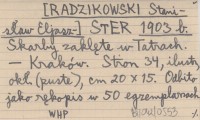 [RADZIKOWSKI Stani-
sław Eljasz-] STER 1903 b.
Skarby zaklęte w Tatrach.
— Kraków. Stron 34, ilustr.,
okł. (puste), cm 20 x 15. Odbito
jako rękopis w 50 egzemplarzach
WHP